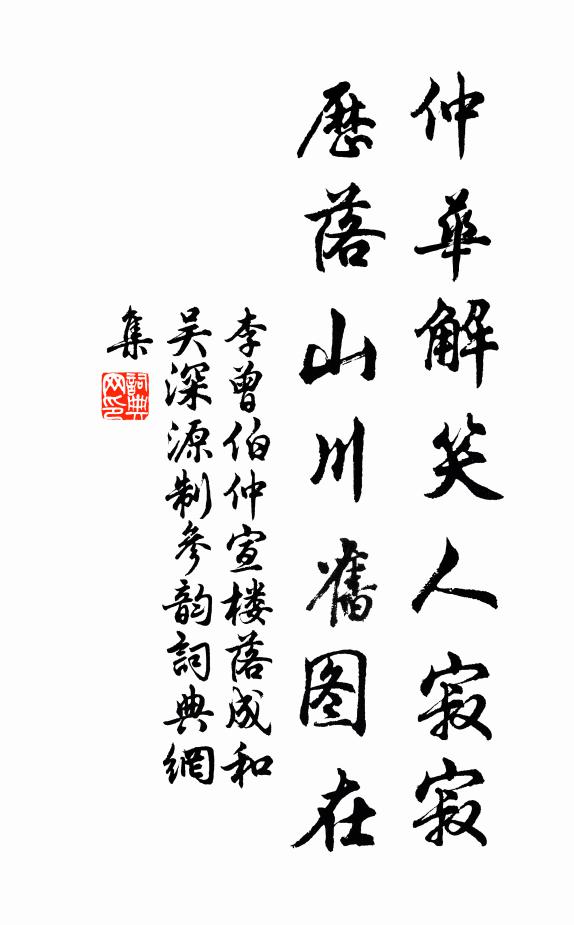 仲华解笑人寂寂
历落山川旧图在
李曾伯仲宣楼落成和
吴深源制参韵词典網
集
詞典網印